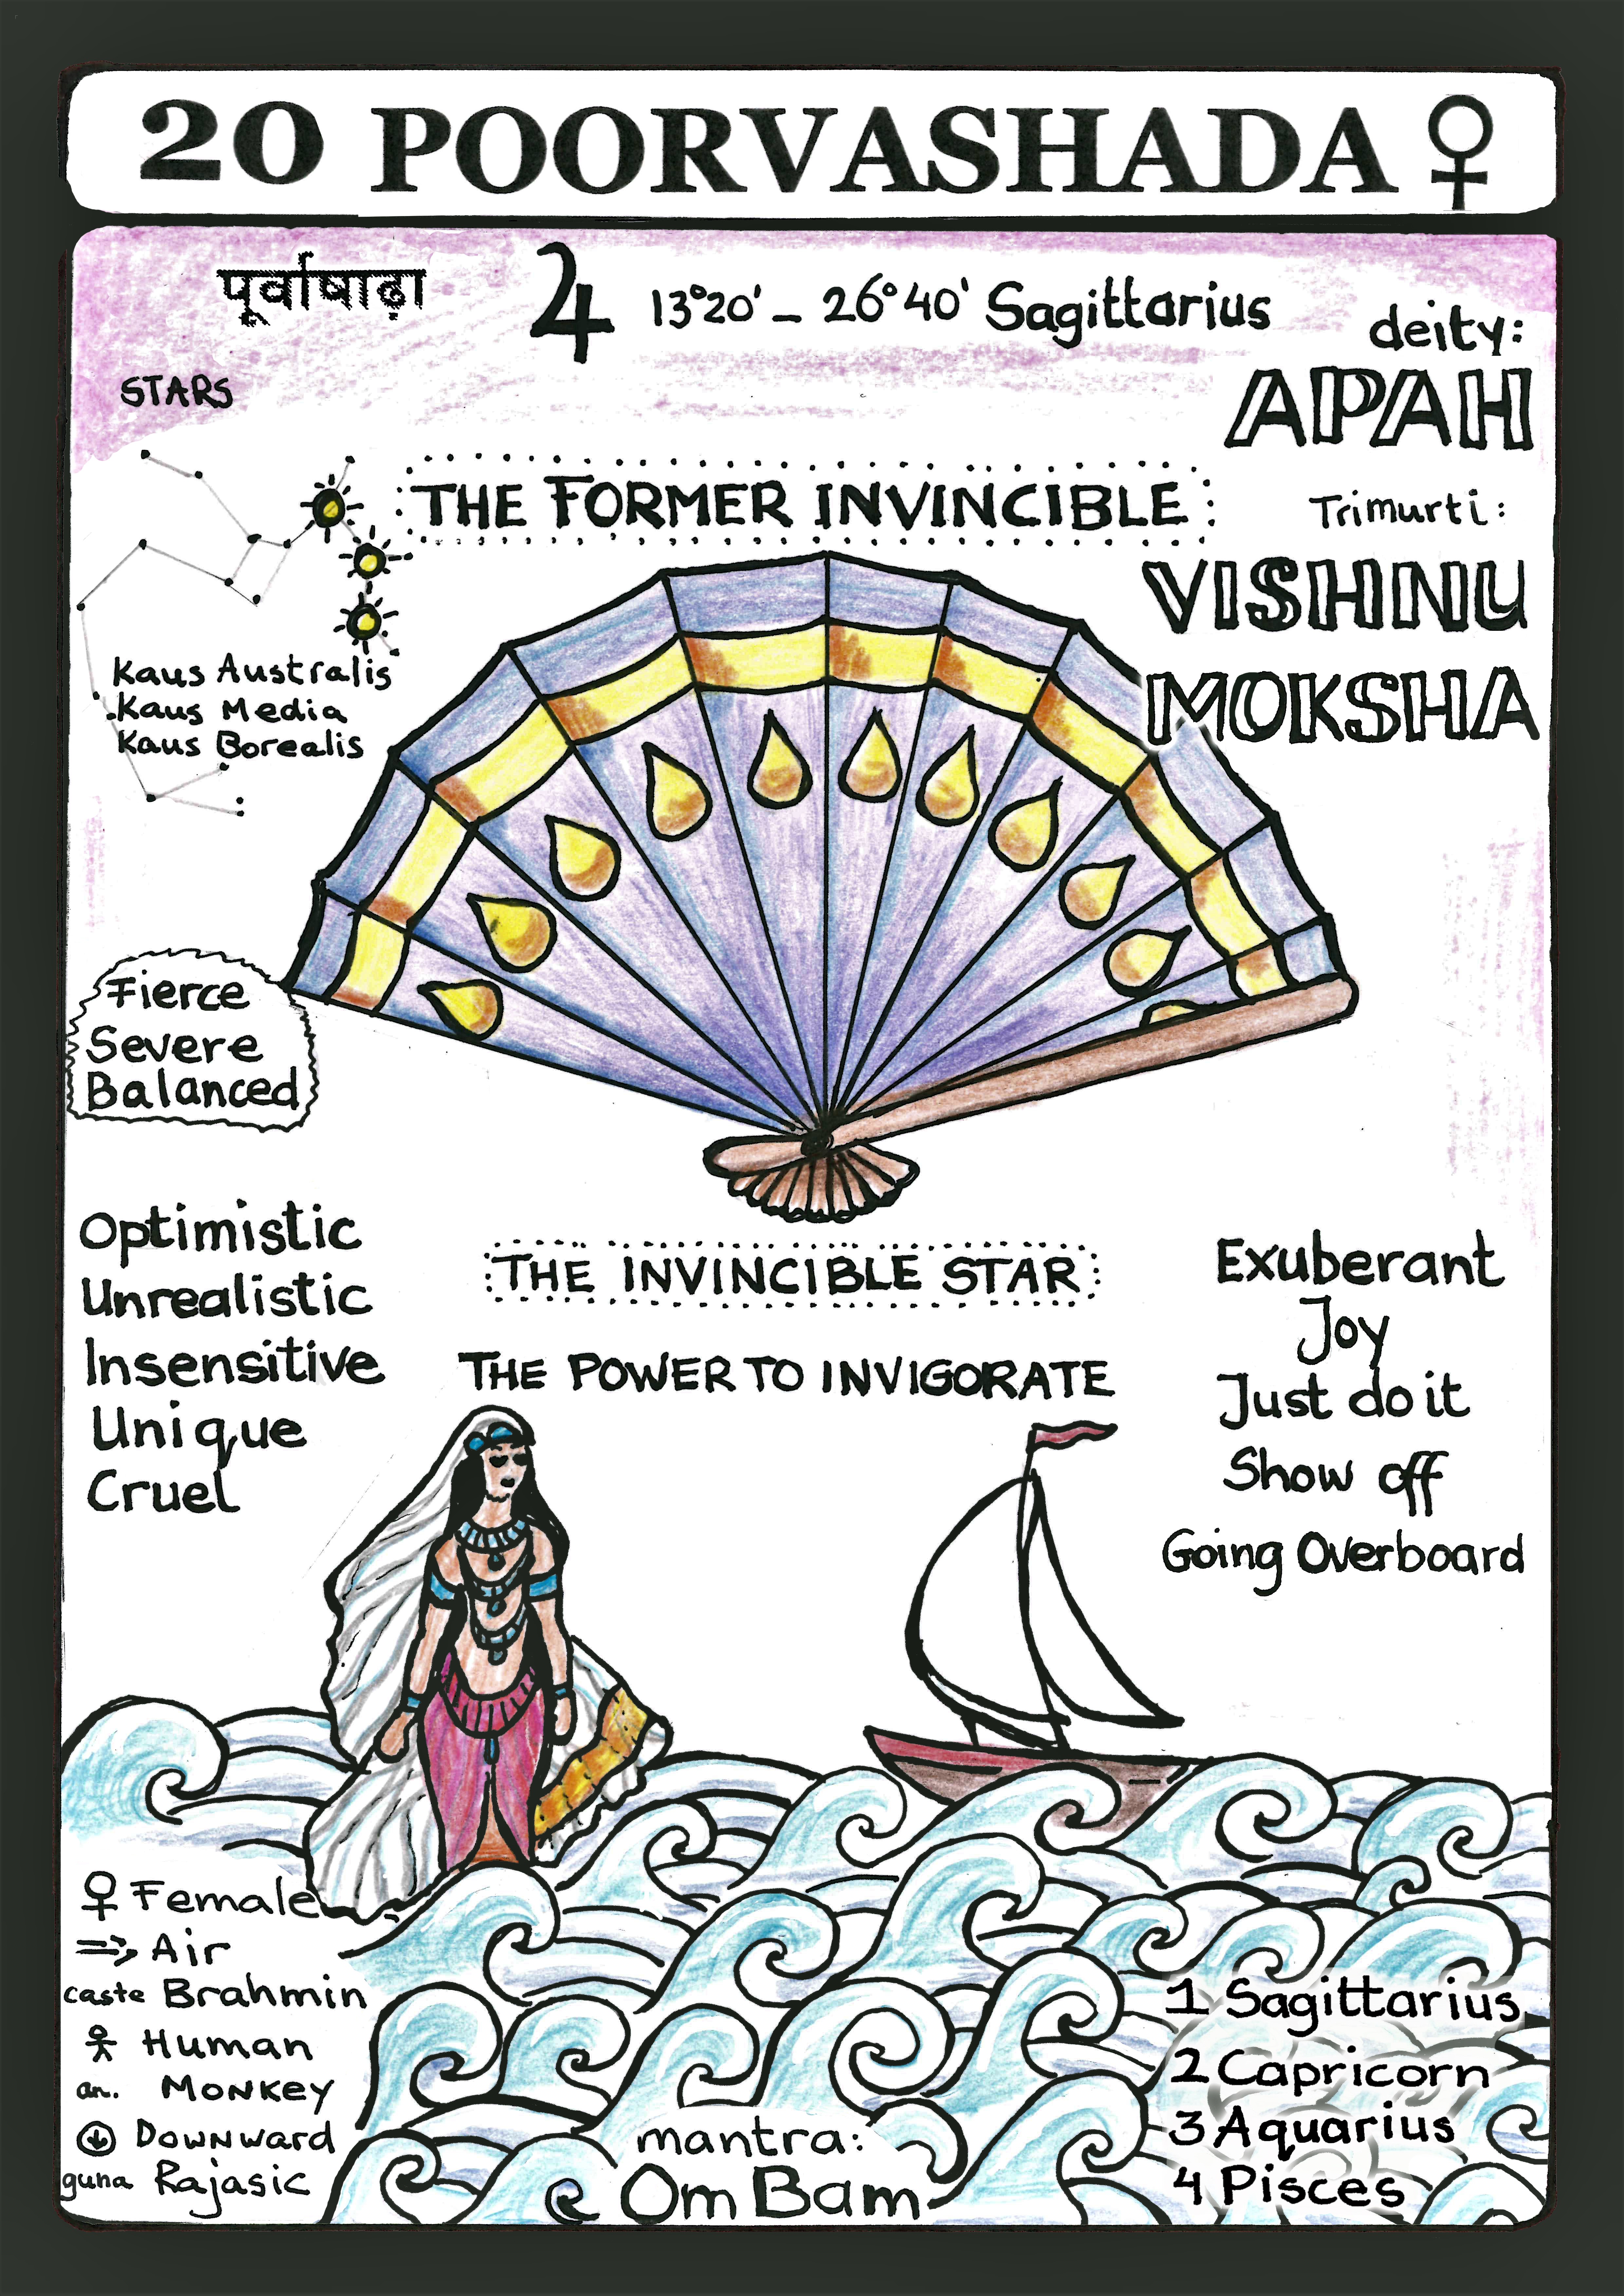 20 POORVASHADA ♀
पूर्वाषाढ़ा
♃ 13°20' – 26°40' Sagittarius
deity:
APAH
STARS
THE FORMER INVINCIBLE
Trimurti:
VISHNU
MOKSHA
Kaus Australis
Kaus Media
Kaus Borealis
Fierce
Severe
Balanced
Optimistic
Unrealistic
Insensitive
Unique
Cruel
THE INVINCIBLE STAR
THE POWER TO INVIGORATE
Exuberant
Joy
Just do it
Show off
Going Overboard
♀ Female
Air
caste Brahmin
Human
an. Monkey
Downward
guna Rajasic
mantra:
Om Bam
1 Sagittarius
2 Capricorn
3 Aquarius
4 Pisces